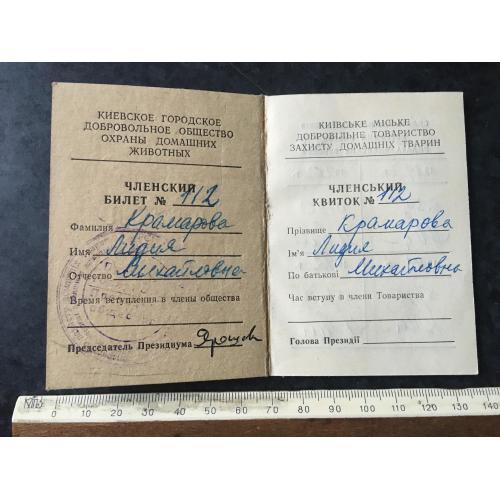 КИЕВСКОЕ ГОРОДСКОЕ
ДОБРОВОЛЬНОЕ ОБЩЕСТВО
ОХРАНЫ ДОМАШНИХ
ЖИВОТНЫХ
ЧЛЕНСКИЙ
БИЛЕТ № 112
Фамилия Крамарова
Имя Лидия
Отчество Михайловна
Время вступления в члены общества
Председатель Президиума
КИЇВСЬКЕ МІСЬКЕ
ДОБРОВІЛЬНЕ ТОВАРИСТВО
ЗАХИСТУ ДОМАШНІХ ТВАРИН
ЧЛЕНСЬКИЙ
КВИТОК № 112
Прізвище Крамарова
Ім'я Лидия
По батькові Михайловна
Час вступу в члени Товариства
Голова Президії
0 10 20 30 40 50 60 70 80 90 100 110 120 130 140